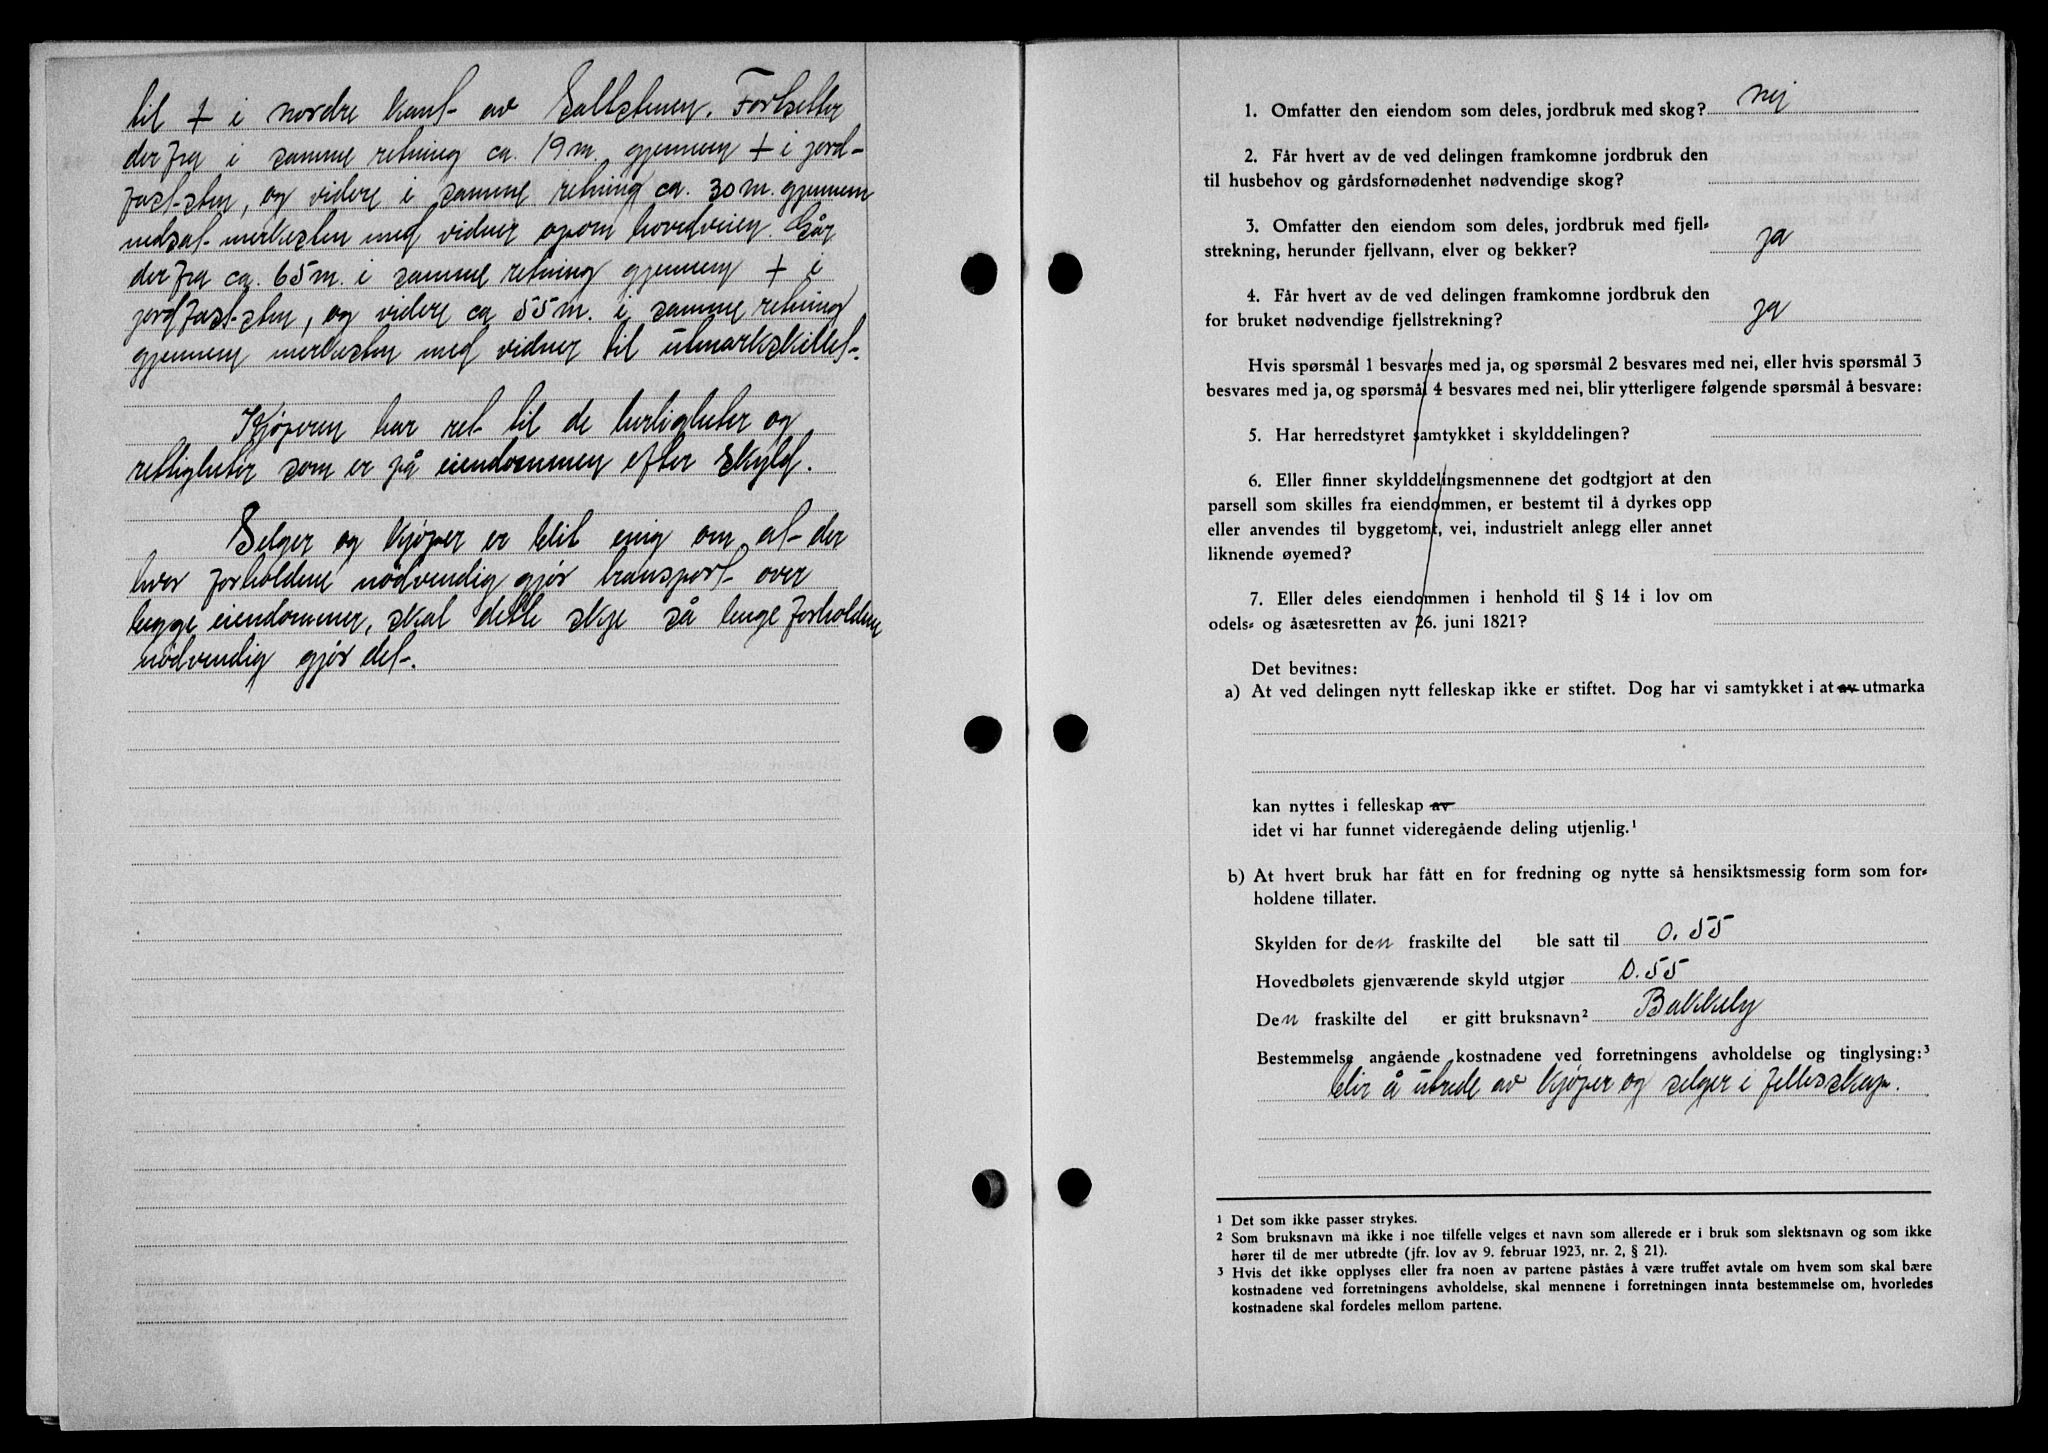 til + i nordre kant av Saltstenen. Fortsetter
derfra i samme retning ca. 19 m. gjennem + i jord-
fast sten, og videre i samme retning ca. 30 m. gjennem
nedsat merkesten med vidner opom hovedveien. Går
derfra ca. 65 m. i samme retning gjennem + i
jordfast sten, og videre ca 55 m. i samme retning
gjennem merkesten med vidner til utmarkskillet.
Kjøperen har ret til de herligheter og
rettigheter som er på eiendommen efter skyld.
Selger og kjøper er blit enig om at der
hvor forholdene nødvendig gjør transport over
begge eiendommer, skal dette skje så lenge forholdene
nødvendig gjør det.
1. Omfatter den eiendom som deles, jordbruk med skog? nej
2. Får hvert av de ved delingen framkomne jordbruk den
til husbehov og gårdsfornødenhet nødvendige skog?
3. Omfatter den eiendom som deles, jordbruk med fjell-
strekning, herunder fjellvann, elver og bekker? ja
4. Får hvert av de ved delingen framkomne jordbruk den
for bruket nødvendige fjellstrekning? ja
Hvis spørsmål 1 besvares med ja, og spørsmål 2 besvares med nei, eller hvis spørsmål 3
besvares med ja, og spørsmål 4 besvares med nei, blir ytterligere følgende spørsmål å besvare:
5. Har herredstyret samtykket i skylddelingen?
6. Eller finner skylddelingsmennene det godtgjort at den
parsell som skilles fra eiendommen, er bestemt til å dyrkes opp
eller anvendes til byggetomt, vei, industrielt anlegg eller annet
liknende øyemed?
7. Eller deles eiendommen i henhold til § 14 i lov om
odels- og åsætesretten av 26. juni 1821?
Det bevitnes:
a) At ved delingen nytt felleskap ikke er stiftet. Dog har vi samtykket i at av utmarka
kan nyttes i felleskap av
idet vi har funnet videregående deling utjenlig.¹
b) At hvert bruk har fått en for fredning og nytte så hensiktsmessig form som for-
holdene tillater.
Skylden for den fraskilte del ble satt til 0.55
Hovedbølets gjenværende skyld utgjør 0.55
Den fraskilte del er gitt bruksnavn² Bakkely
Bestemmelse angående kostnadene ved forretningens avholdelse og tinglysing:³
blir å utrede av kjøper og selger i fellesskap.
¹ Det som ikke passer strykes.
² Som bruksnavn må ikke i noe tilfelle velges et navn som allerede er i bruk som slektsnavn og som ikke
hører til de mer utbredte (jfr. lov av 9. februar 1923, nr. 2, § 21).
³ Hvis det ikke opplyses eller fra noen av partene påståes å være truffet avtale om hvem som skal bære
kostnadene ved forretningens avholdelse, skal mennene i forretningen innta bestemmelse om, hvorledes
kostnadene skal fordeles mellom partene.